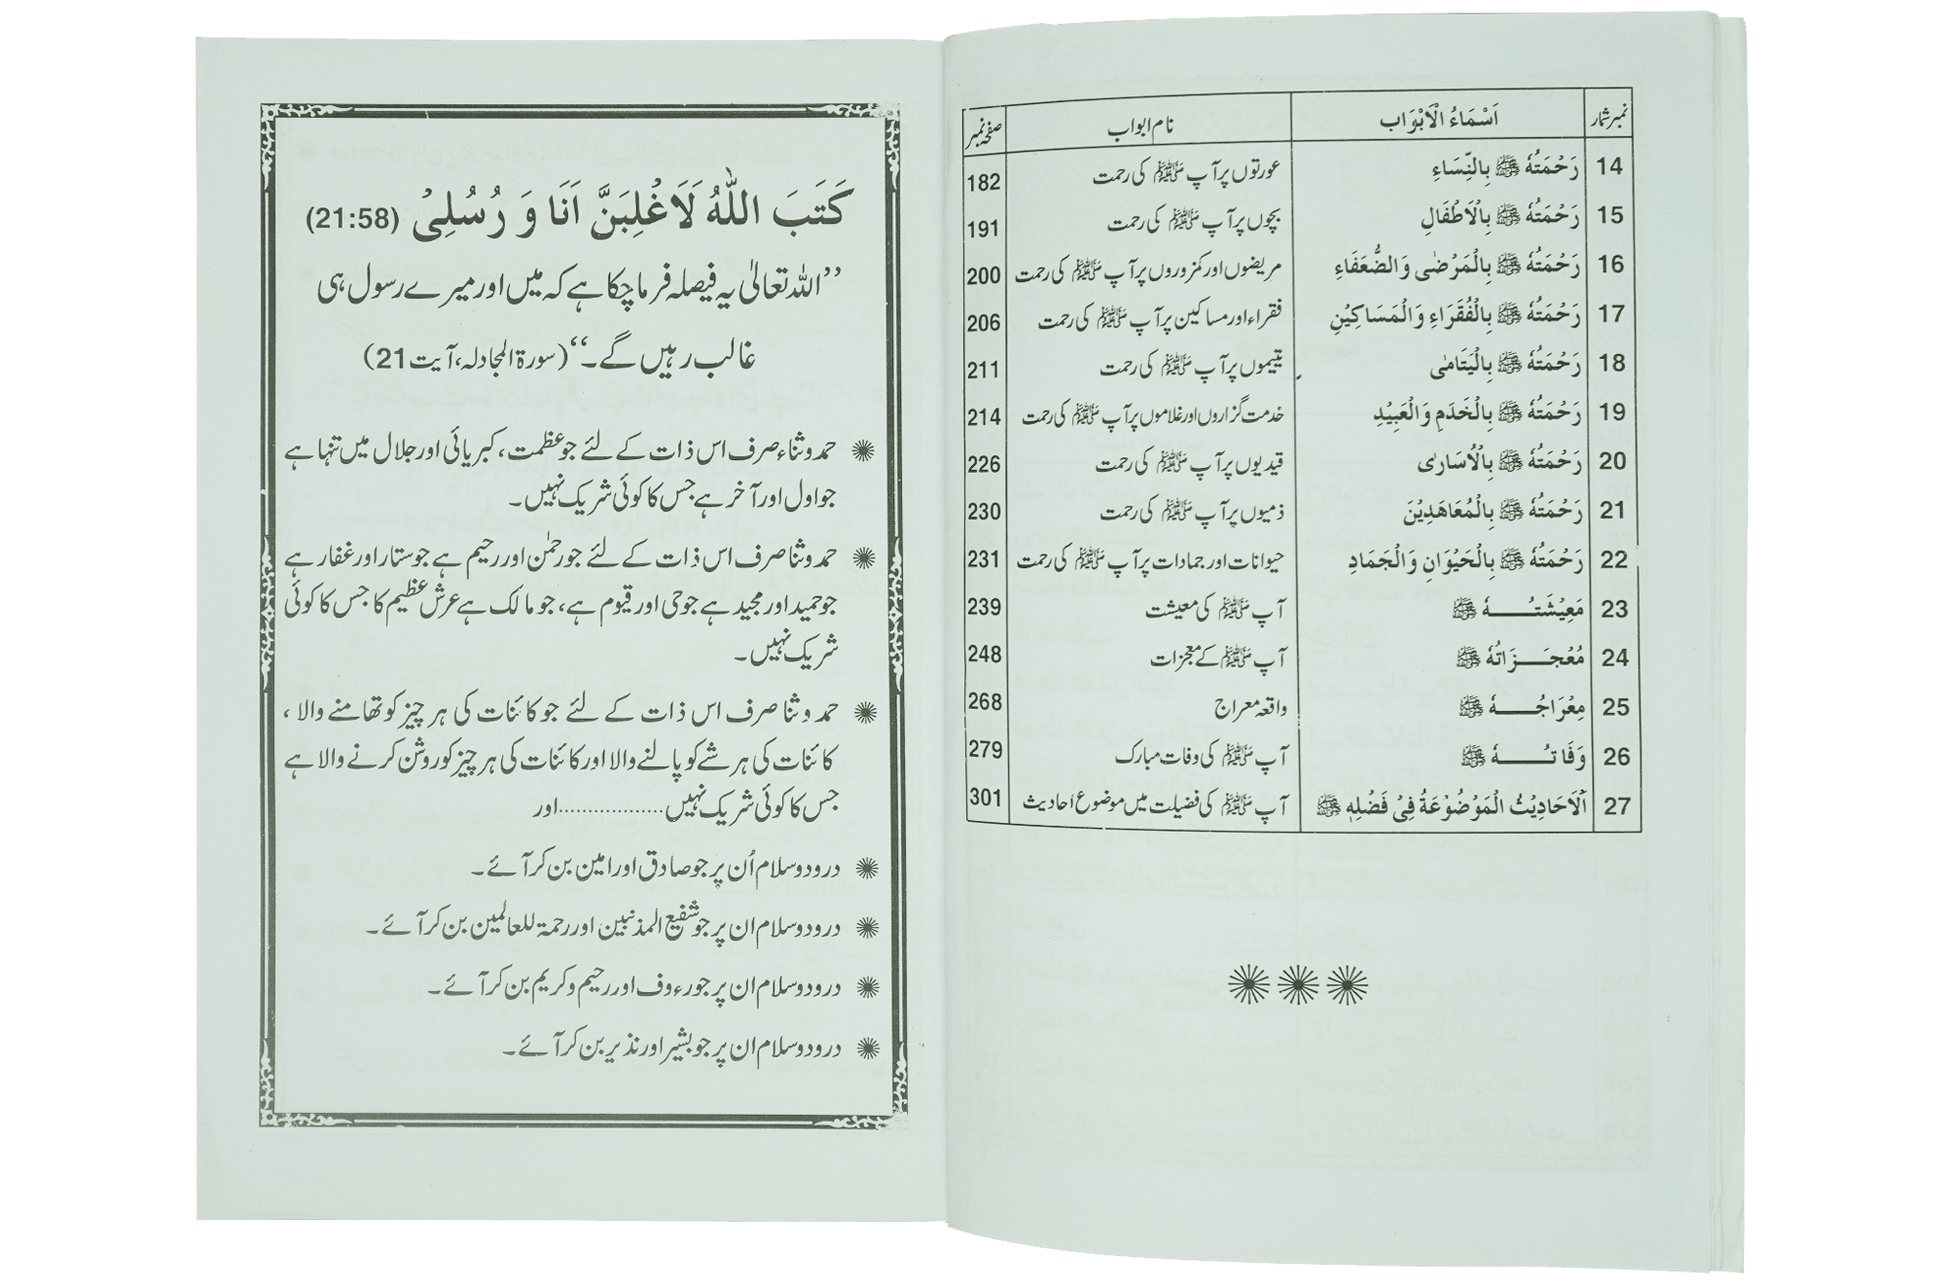 نمبر شمار اَسْمَاءُ الْاَبْوَاب نام ابواب صفحہ نمبر
14 رَحْمَتُهٗ ﷺ بِالنِّسَاءِ عورتوں پر آپ ﷺ کی رحمت 182
15 رَحْمَتُهٗ ﷺ بِالْاَطْفَالِ بچوں پر آپ ﷺ کی رحمت 191
16 رَحْمَتُهٗ ﷺ بِالْمَرْضٰى وَالضُّعَفَاءِ مریضوں اور کمزوروں پر آپ ﷺ کی رحمت 200
17 رَحْمَتُهٗ ﷺ بِالْفُقَرَاءِ وَالْمَسَاكِيْنِ فقراء اور مساکین پر آپ ﷺ کی رحمت 206
18 رَحْمَتُهٗ ﷺ بِالْيَتَامٰى یتیموں پر آپ ﷺ کی رحمت 211
19 رَحْمَتُهٗ ﷺ بِالْخَدَمِ وَالْعَبِيْدِ خدمت گزاروں اور غلاموں پر آپ ﷺ کی رحمت 214
20 رَحْمَتُهٗ ﷺ بِالْاُسَارٰى قیدیوں پر آپ ﷺ کی رحمت 226
21 رَحْمَتُهٗ ﷺ بِالْمُعَاهَدِيْنَ ذمیوں پر آپ ﷺ کی رحمت 230
22 رَحْمَتُهٗ ﷺ بِالْحَيْوَانِ وَالْجَمَادِ حیوانات اور جمادات پر آپ ﷺ کی رحمت 231
23 مَعِيْشَتُـــــهٗ ﷺ آپ ﷺ کی معیشت 239
24 مُعْجـــزَاتُهٗ ﷺ آپ ﷺ کے معجزات 248
25 مِعْرَاجُـــــهٗ ﷺ واقعہ معراج 268
26 وَفَاتُـــــهٗ ﷺ آپ ﷺ کی وفات مبارک 279
27 اَلْاَحَادِيْثُ الْمَوْضُوْعَةُ فِىْ فَضْلِهٖ ﷺ آپ ﷺ کی فضیلت میں موضوع احادیث 301
كَتَبَ اللّٰهُ لَاَغْلِبَنَّ اَنَا وَ رُسُلِىْ (21:58)
’’اللہ تعالیٰ یہ فیصلہ فرما چکا ہے کہ میں اور میرے رسول ہی
غالب رہیں گے۔‘‘ (سورۃ المجادلہ، آیت 21)
حمد و ثناء صرف اس ذات کے لئے جو عظمت، کبریائی اور جلال میں تنہا ہے
جو اول اور آخر ہے جس کا کوئی شریک نہیں۔
حمد و ثنا صرف اس ذات کے لئے جو رحمٰن اور رحیم ہے جو ستار اور غفار ہے
جو حمید اور مجید ہے جو حی اور قیوم ہے، جو مالک ہے عرش عظیم کا جس کا کوئی
شریک نہیں۔
حمد و ثنا صرف اس ذات کے لئے جو کائنات کی ہر چیز کو تھامنے والا،
کائنات کی ہر شے کو پالنے والا اور کائنات کی ہر چیز کو روشن کرنے والا ہے
جس کا کوئی شریک نہیں..................اور
درود و سلام اُن پر جو صادق اور امین بن کر آئے۔
درود و سلام ان پر جو شفیع المذنبین اور رحمۃ للعالمین بن کر آئے۔
درود و سلام ان پر جو رءوف اور رحیم و کریم بن کر آئے۔
درود و سلام ان پر جو بشیر اور نذیر بن کر آئے۔